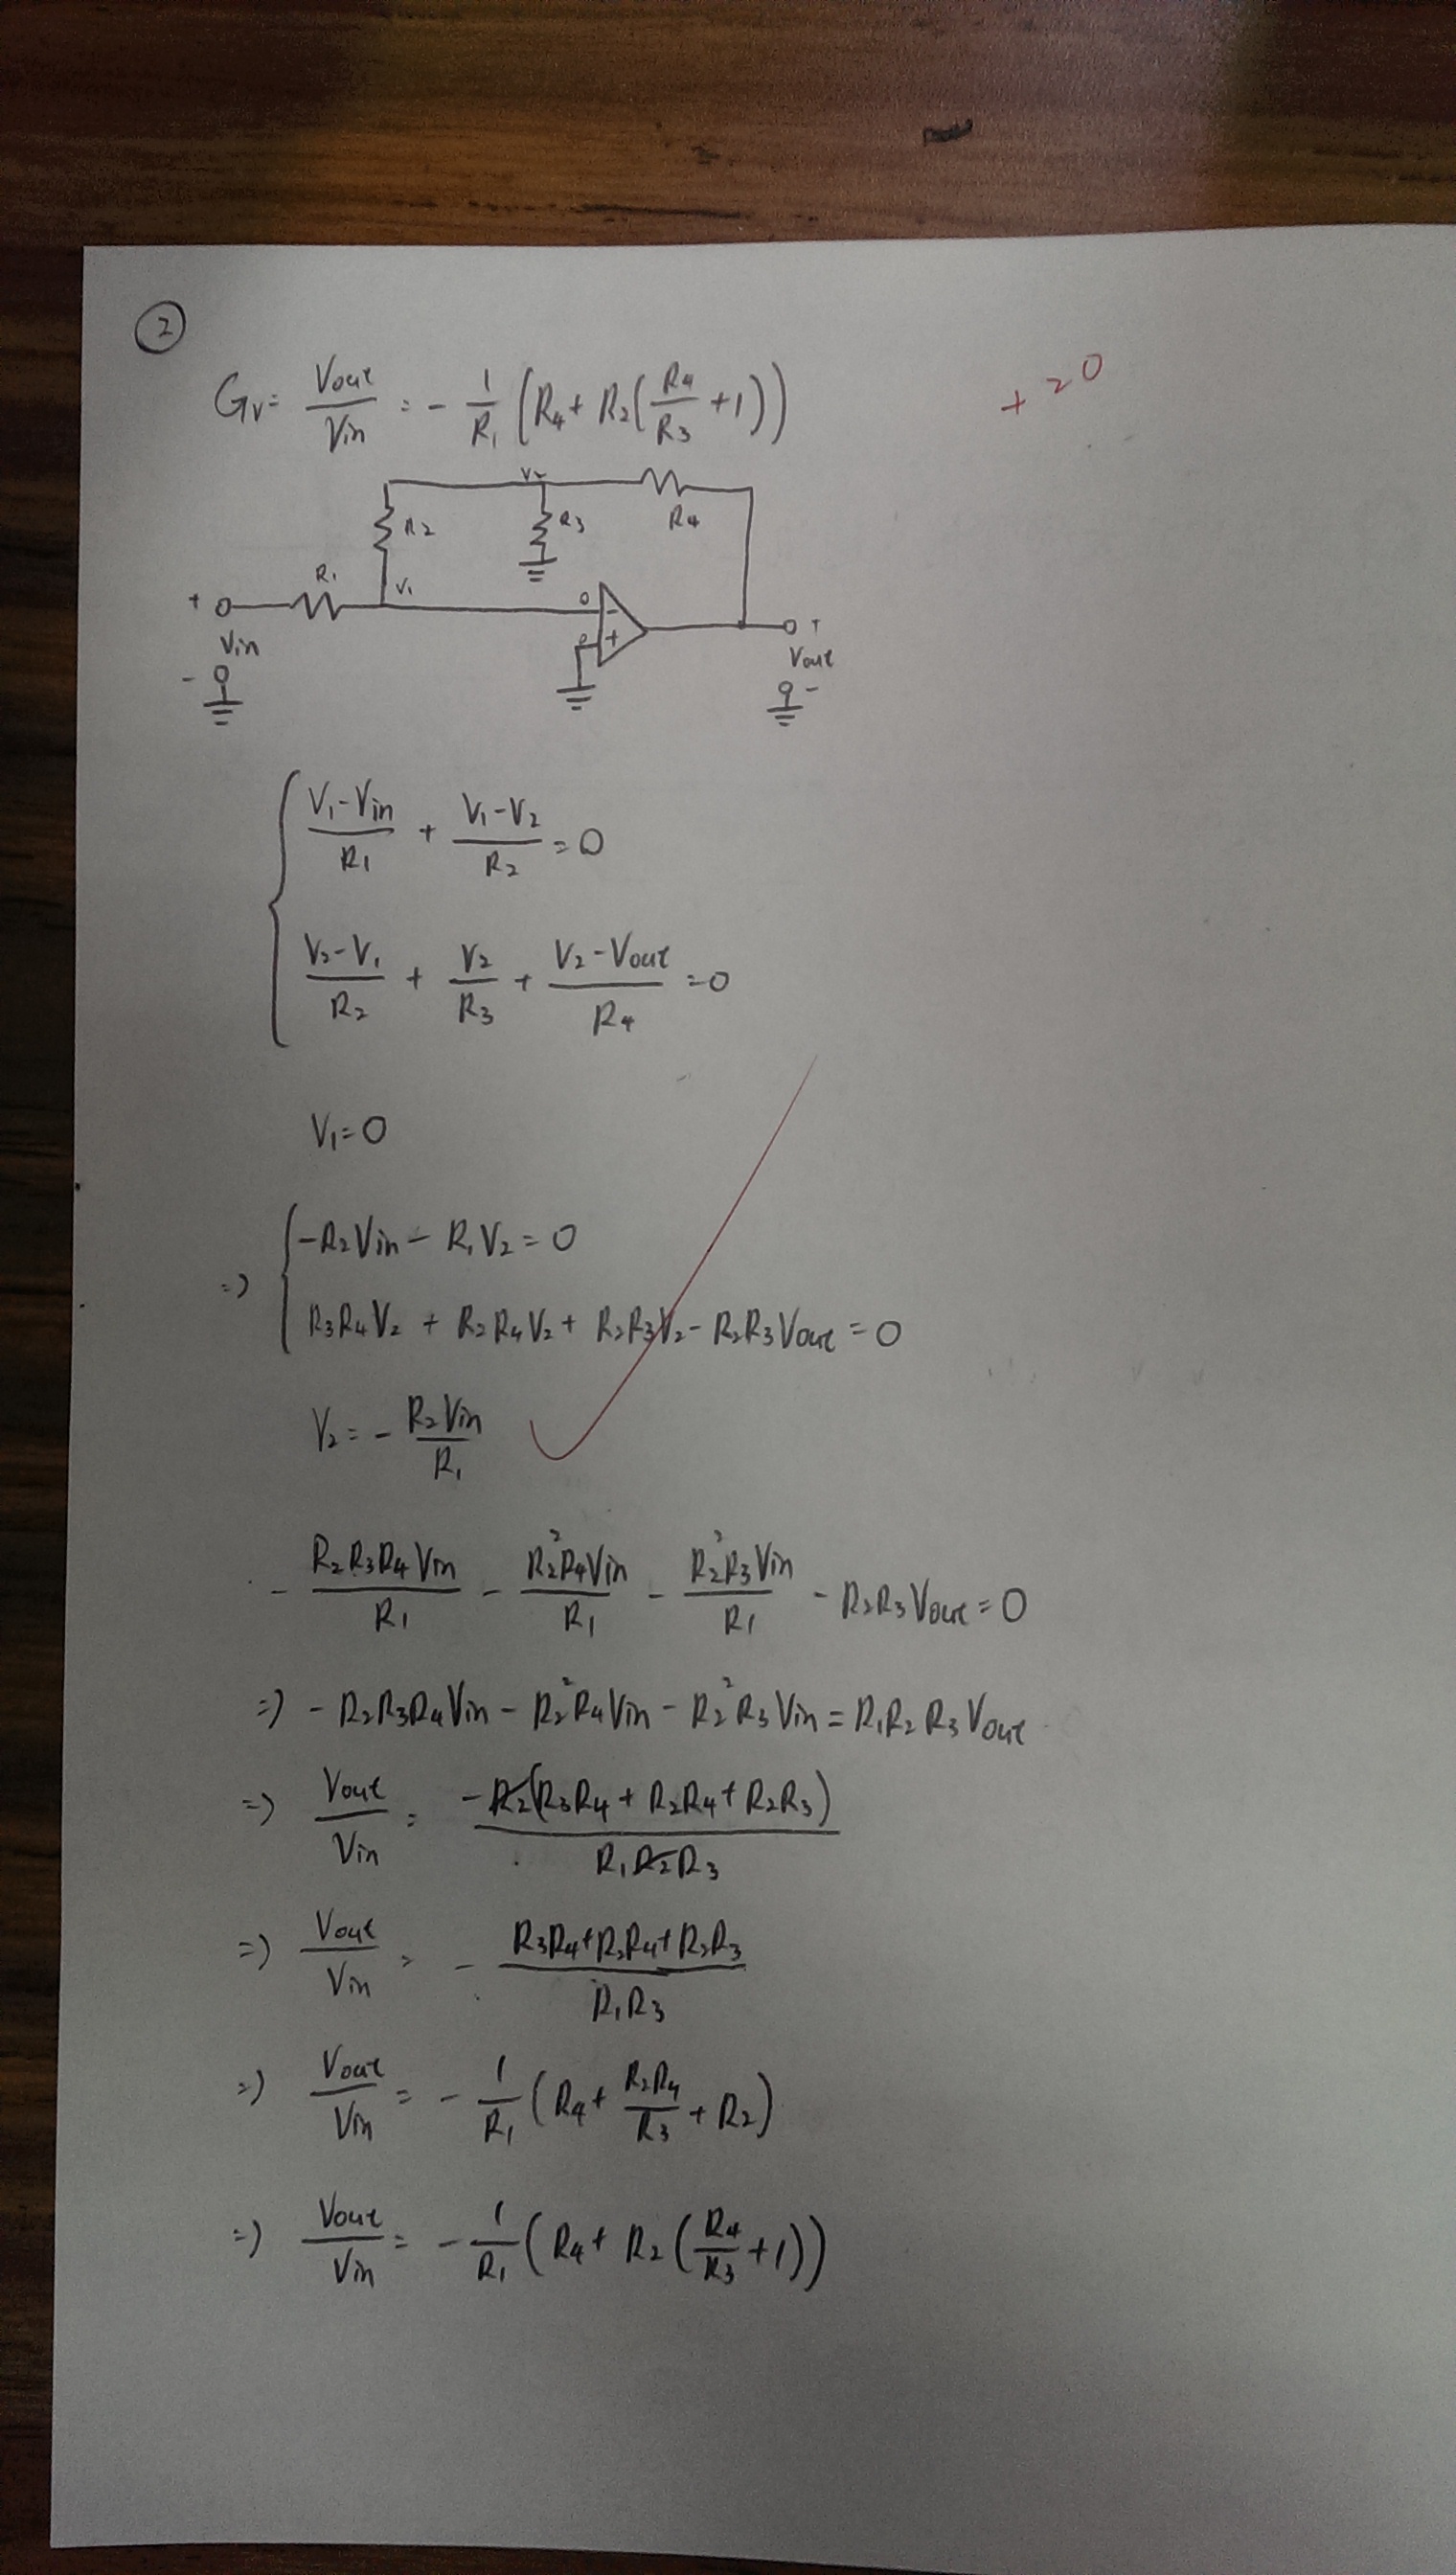 ②
Gv = Vout/Vin = - 1/R1 (R4 + R2(R4/R3 + 1))
+20
V2
R2 R3 R4
R1 V1
+ 0 - +
Vin 0 + Vout
- -
(V1-Vin)/R1 + (V1-V2)/R2 = 0
(V2-V1)/R2 + V2/R3 + (V2-Vout)/R4 = 0
V1 = 0
=> -R2Vin - R1V2 = 0
R3R4V2 + R2R4V2 + R2R3V2 - R2R3Vout = 0
V2 = - R2Vin/R1
- R2R3R4Vin/R1 - R2²R4Vin/R1 - R2²R3Vin/R1 - R2R3Vout = 0
=> -R2R3R4Vin - R2²R4Vin - R2²R3Vin = R1R2R3Vout
=> Vout/Vin = -R2(R3R4 + R2R4 + R2R3)/R1R2R3
=> Vout/Vin = - (R3R4+R2R4+R2R3)/R1R3
=> Vout/Vin = - 1/R1 (R4 + R2R4/R3 + R2)
=> Vout/Vin = - 1/R1 (R4 + R2(R4/R3 + 1))